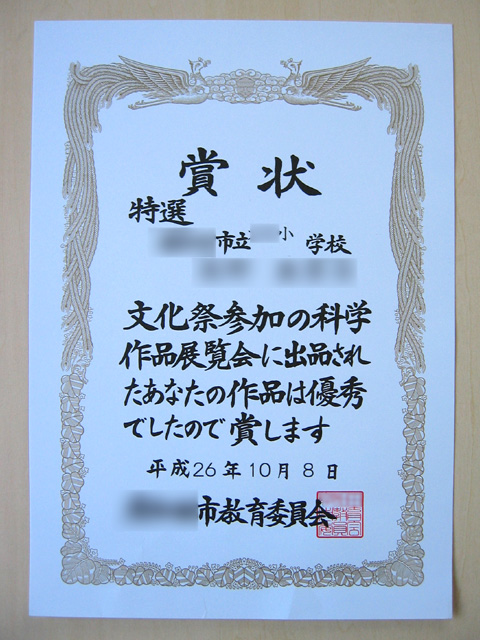 賞状
特選
市立 小 学校
文化祭参加の科学
作品展覧会に出品され
たあなたの作品は優秀
でしたので賞します
平成26年10月8日
市教育委員会